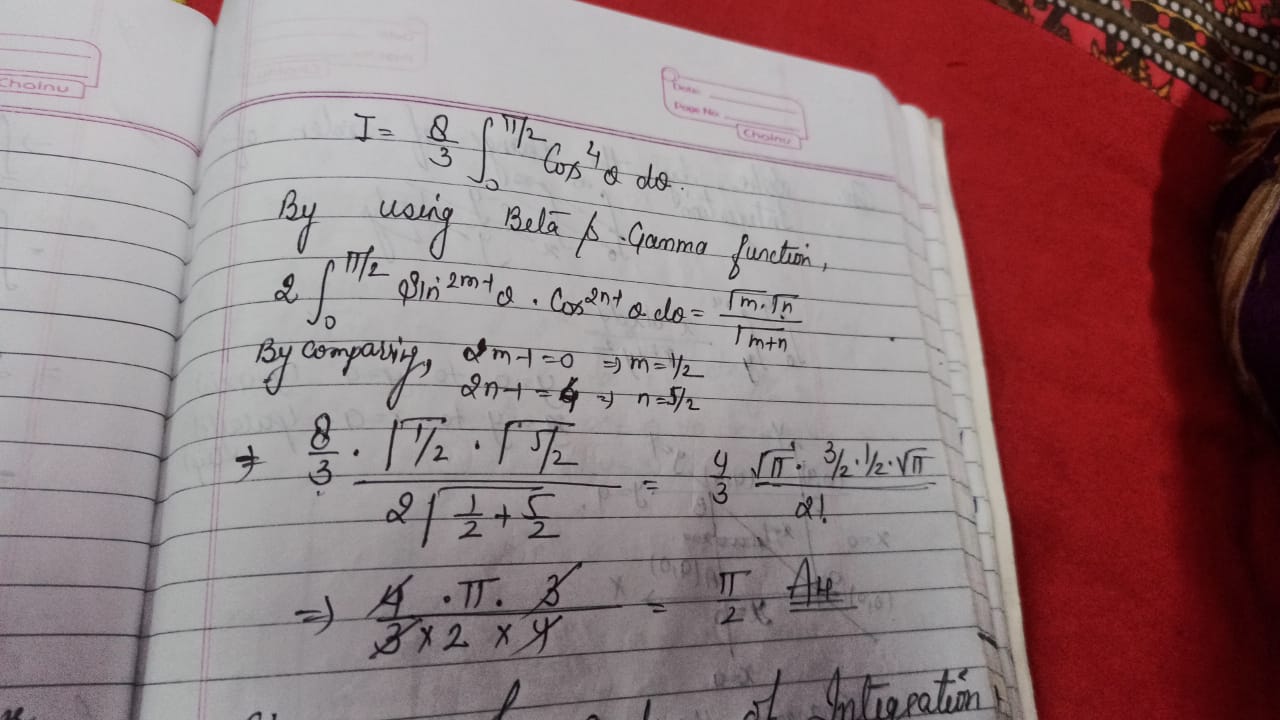 Cholnu
Date:
Page No.
Cholnu
I = 8/3 ∫₀^π/2 Cos⁴θ dθ.
By using Beta & Gamma function,
2 ∫₀^π/2 Sin^2m-1 θ . Cos^2n-1 θ dθ = Γm.Γn / Γm+n
By comparing, 2m-1=0 ⇒ m=1/2
2n-1=4 ⇒ n=5/2
⇒ 8/3 . Γ1/2 . Γ5/2 / 2Γ1/2+5/2 = 4/3 √π . 3/2.1/2.√π / 2!
⇒ 4.π.3 / 3×2×4 = π/2 Ans
of Integration